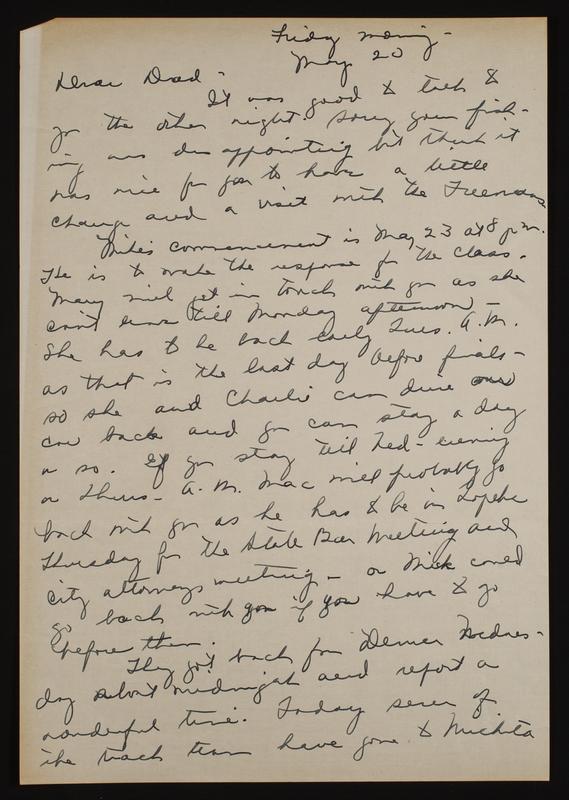 Friday morning -
May 20
Dear Dad -
It was good to talk to
you the other night. Sorry your fish-
ing was disappointing but think it
was nice for you to have a little
change and a visit with the Freemans
Mike's commencement is May 23 at 8 p.m.
He is to make the response for the class.
Mary will get in touch with you as she
can't leave till Monday afternoon -
She has to be back early Tues. A.M.
as that is the last day before finals -
so she and Charlie can drive our
car back and you can stay a day
or so. If you stay till Wed - evening
or Thurs - A.M. Mac will probably go
back with you as he has to be in Topeka
Thursday for the State Bar Meeting and
City attorneys meeting - or Mick could
go back with you if you have to go
before then.
They got back from Denver Wednes-
day about midnight and report a
wonderful time. Today seven of
the track team have gone to Wichita